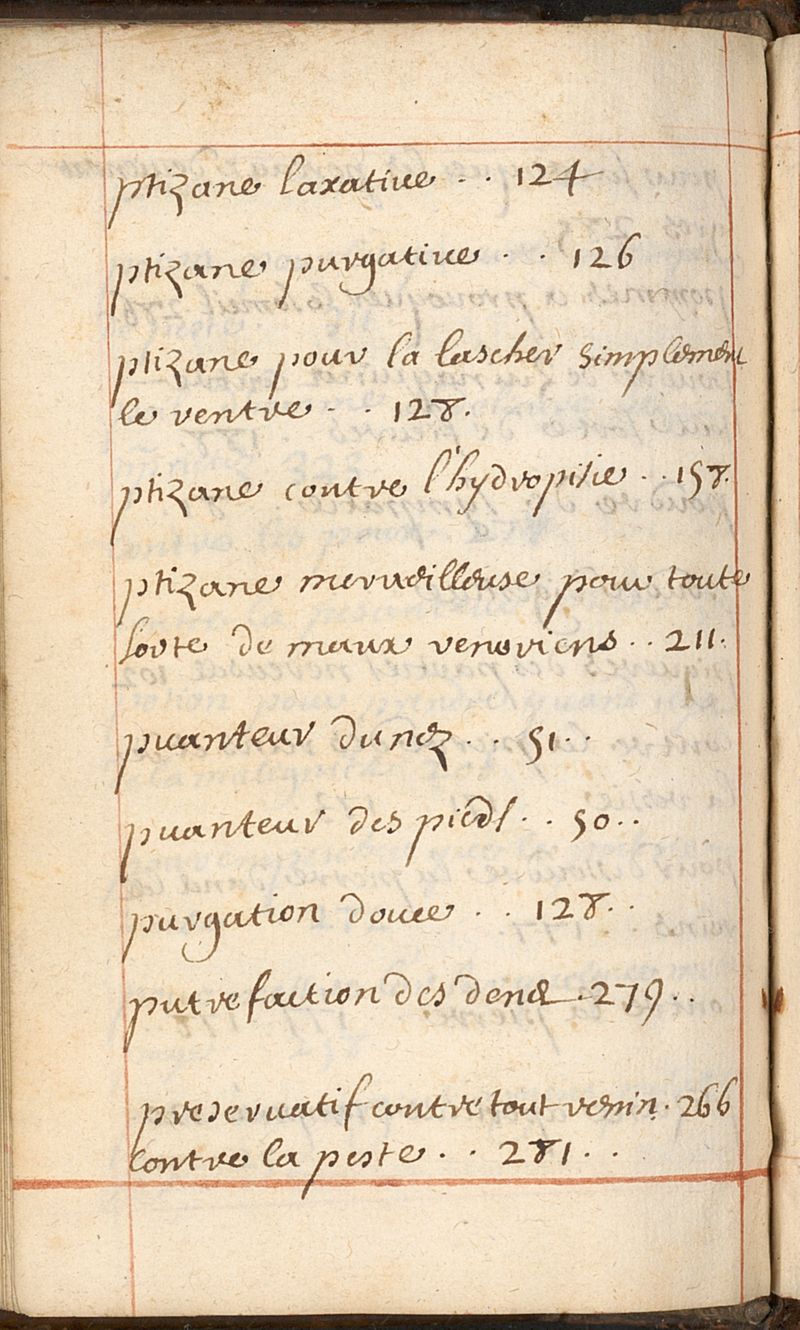 ptizane laxative . . 124
ptizane purgative . . 126
ptizane pour la lascher simplement
le ventre . . 128.
ptizane contre l'hydropisie . . 158.
ptizane merveilleuse pour toute
sorte de maux veneriens . . 211.
puanteur du nez . . 51 . .
puanteur des pieds . . 50 . .
purgation douce . . 128 . .
putrefaction des dens . 279 . .
preservatif contre tout venin . 266
contre la peste . . 281 . .